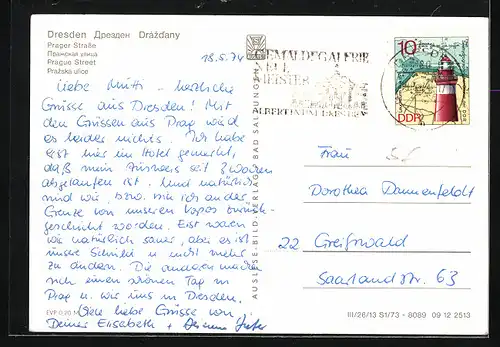 Dresden Дрезден Drážďany
Prager Straße
Пражская улица
Prague Street
Pražska ulice
18.5.74
Liebe Mutti – herzliche
Grüsse aus Dresden! Mit
den Grüssen aus Prag wird
es leider nichts. Ich habe
erst hier im Hotel gemerkt,
daß mein Ausweis seit 2 Wochen
abgelaufen ist. Und natürlich
sind wir, bzw. bin ich an der
Grenze von unseren Vopos zurück-
geschickt worden. Erst waren
wir natürlich sauer, aber es ist
unsere Schuld u. nicht mehr
zu ändern. Die anderen machen
sich einen schönen Tag in
Prag u. wir uns in Dresden.
Viele liebe Grüsse von
Deiner Elisabeth +
EVP 0,20 M
AUSLESE-BILD-VERLAG BAD SALZUNGEN
GEMÄLDEGALERIE
ALTE
MEISTER
ALBERTINUM
10
DDR
Frau
Dorothea Dannenfeldt
22 Greifswald
Saarlandstr. 63
III/26/13 S1/73 - 8089 09 12 2513